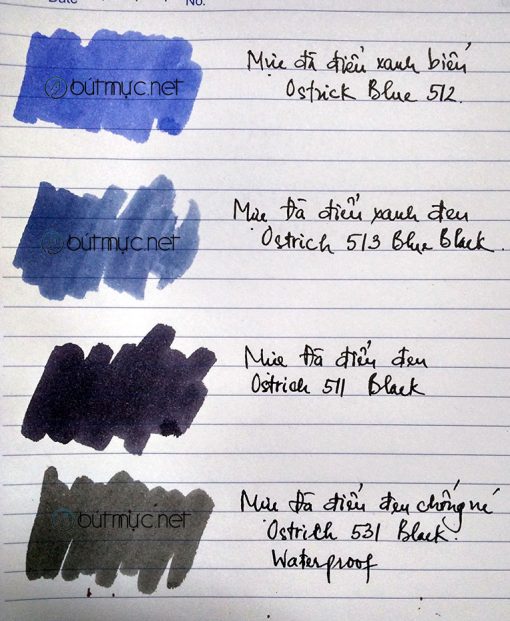 Date
No.
bútmực.net
Mực đà điểu xanh biển
Ostrick Blue 512.
bútmực.net
Mực Đà điểu xanh đen
Ostrich 513 Blue Black.
Mực Đà điểu đen
Ostrich 511 Black
bútmực.net
Mực Đà điểu đen chống
Ostrich 531 Black.
Waterproof